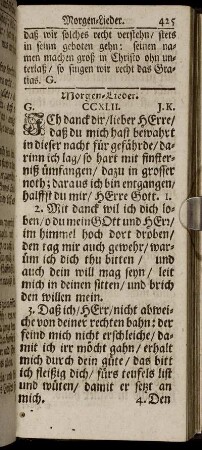 Morgen-Lieder. 425
daß wir solches recht verstehn/ stets
in seinn geboten gehn: seinen na-
men machen groß in Christo ohn un-
terlaß/ so singen wir recht das Gra-
tias. G.
Morgen-Lieder.
G. CCXLII. J.K.
ICh danck dir/lieber HErre/
daß du mich hast bewahrt
in dieser nacht für gefährde/da-
rinn ich lag/ so hart mit finster-
niß ümfangen/ dazu in grosser
noth; daraus ich bin entgangen/
halffst du mir/ HErre Gott. 1.
2. Mit danck wil ich dich lo-
ben/ô du mein GOtt und HErr/
im himmel hoch dort droben/
den tag mir auch gewehr/ war-
üm ich dich thu bitten/ und
auch dein will mag seyn/ leit
mich in deinen sitten/ und brich
den willen mein.
3. Daß ich/HErr/nicht abwei-
che von deiner rechten bahn: der
feind mich nicht erschleiche/ da-
mit ich irr möcht gahn/ erhalt
mich durch dein güte/ das bitt
ich fleißig dich/ fürs teufels list
und wüten/ damit er setzt an
mich. 4. Den